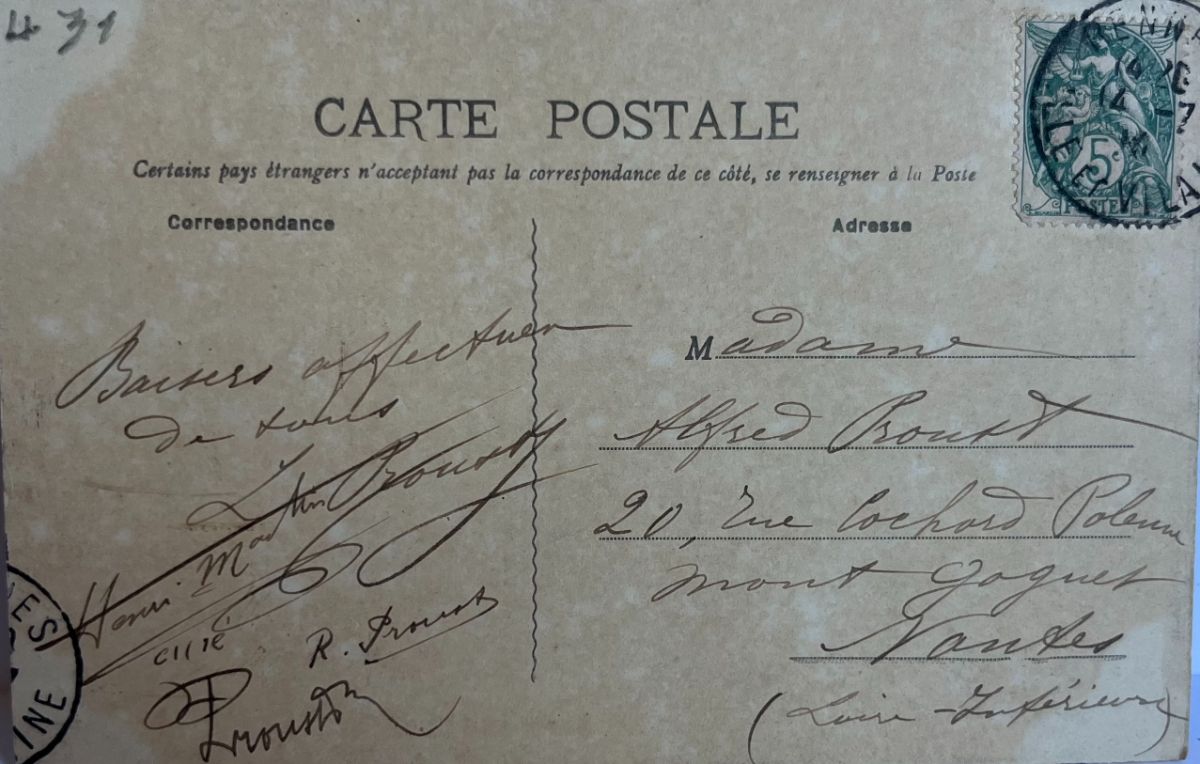 4 31
CARTE POSTALE
Certains pays étrangers n'acceptant pas la correspondance de ce côté, se renseigner à la Poste
Correspondance
Baisers affectueux
de tous
Proust
Henri
R. Proust
Proust
Adresse
Madame
Alfred Proust
20, Rue Cochard Poleur
Mont Goguet
Nantes
(Loire-Inférieure)
5c
POSTES
RENNES
ILLE ET VILAINE
ES
INE